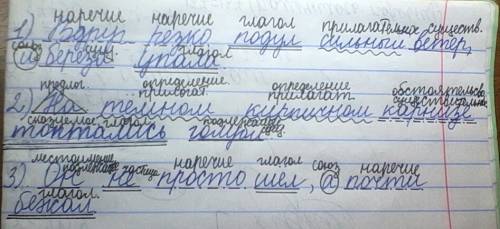 наречие наречие глагол прилагательное существ.
1) Вдруг резко подул сильный ветер,
союз сущ. глагол
и берёза упала.
предлог. определение определение обстоятельство
прилагат. прилагат существительное
2) На тёмном кирпичном карнизе
сказуемое глагол подлежащее сущ.
топтались голуби
местоимение частица наречие глагол союз наречие
подлежащее
3) Он не просто шел, а почти
глагол.
бежал